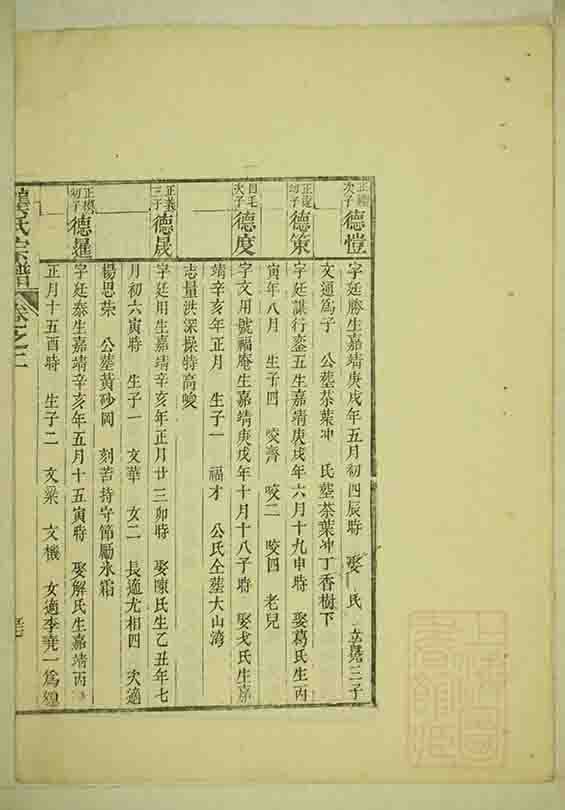 次子 德愷 字廷勝生嘉靖庚戌年五月初四辰時 娶 氏 三子
文通爲子 公塟茶葉冲 氏塟茶葉冲丁香樹下
德策 字廷謀行 五生嘉靖庚戌年六月十九申時 娶葛氏生丙
寅年八月 生子四 咬齊 咬二 咬四 老兒
次子 德度 字文用號福庵生嘉靖庚戌年十月十八子時 娶戈氏生嘉
靖辛亥年正月 生子一 福才 公氏仝塟大山湾
志量洪深操特高峻
三子 德晟 字廷用生嘉靖辛亥年正月廿三卯時 娶陳氏生乙丑年七
月初六寅時 生子一 文華 女二 長適尤相四 次適
楊思榮 公塟黃砂岡 刻苦持守節勵氷霜
德暹 字廷泰生嘉靖辛亥年五月十五寅時 娶解氏生嘉靖丙
正月十五酉時 生子二 文梁 文機 女適李堯一爲
氏宗譜 卷之二